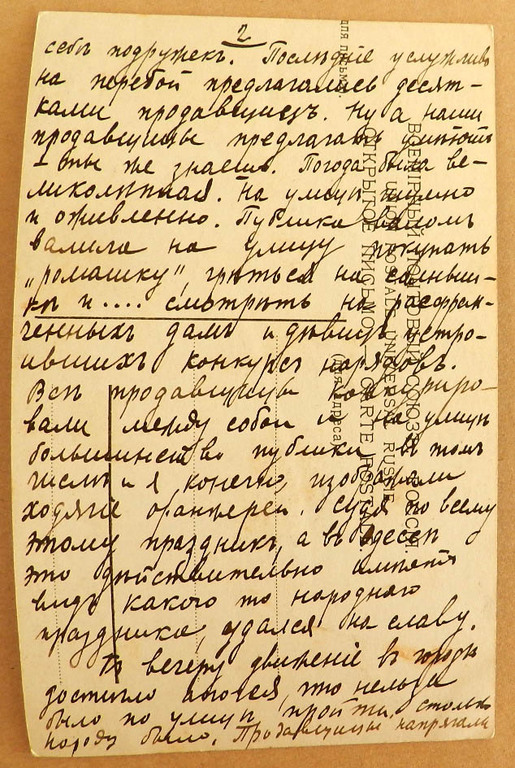 2
себѣ подружекъ. Послѣднiе услужливо
на перебой предлагались десят-
ками продавщицъ. Ну а наши
продавщицы предлагать умѣютъ
– ты же знаешь. Погода была ве-
ликолѣпная. На улицѣ шумно
и оживленно. Публика валомъ
валила на улицу покупать
„ромашку", грѣться на солныш-
кѣ и .... смотрѣть на расфран-
ченныхъ дамъ и дѣвицъ устро-
ившихъ конкурсъ нарядовъ.
Всѣ продавщицы конкуриро-
вали между собой и на улицѣ
большинство публики въ томъ
числѣ и я конечно, изображали
ходячiе оранжереи. Судя по всему
этому праздникъ, а въ Одессѣ
это дѣйствительно имѣетъ
видъ какого то народнаго
праздника, удался на славу.
Къ вечеру движенiе въ городѣ
достигло апогея, что нельзя
было по улицѣ пройти, столько
народу было. Продавщицы напрягали
ВСЕМIРНЫЙ ПОЧТОВЫЙ СОЮЗЪ. РОССIЯ.
UNION POSTALE UNIVERSELLE. RUSSIE.
ОТКРЫТОЕ ПИСЬМО. CARTE POSTALE.
для письма.
адреса